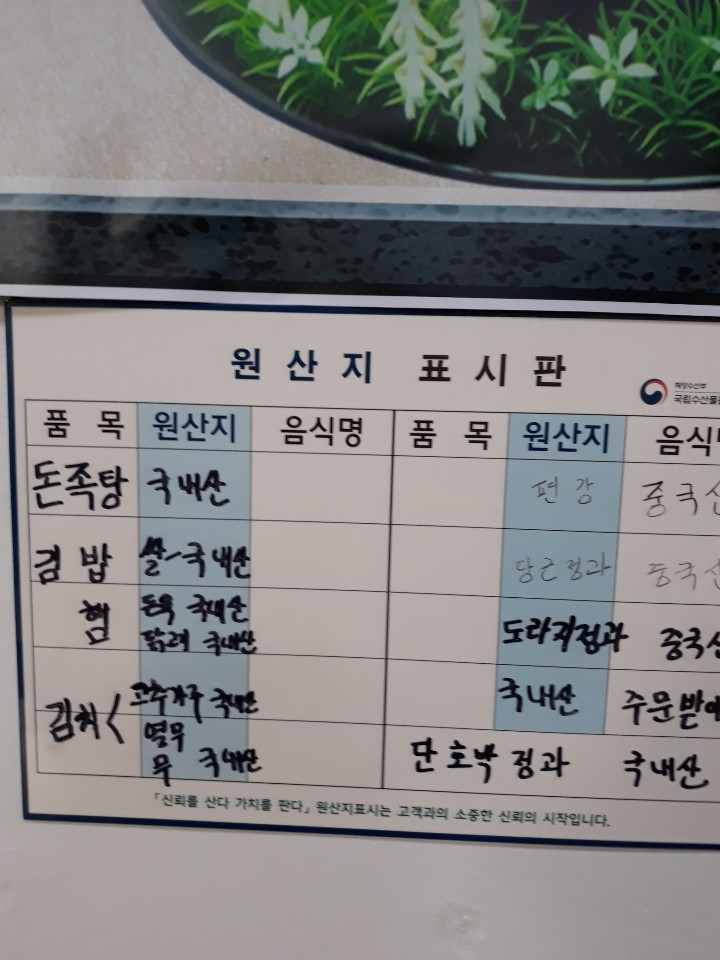 원산지 표시판
해양수산부
국립수산물
품목 원산지 음식명 품목 원산지 음식
돈족탕 국내산 편강 중국산
김밥 쌀-국내산 당근정과 중국산
햄 돈육 국내산
국내산
도라지정과 중국산
김치< 고추가루 국내산 국내산 주문받에
열무
무 국내산
단호박정과 국내산
「신뢰를 산다 가치를 판다」 원산지표시는 고객과의 소중한 신뢰의 시작입니다.